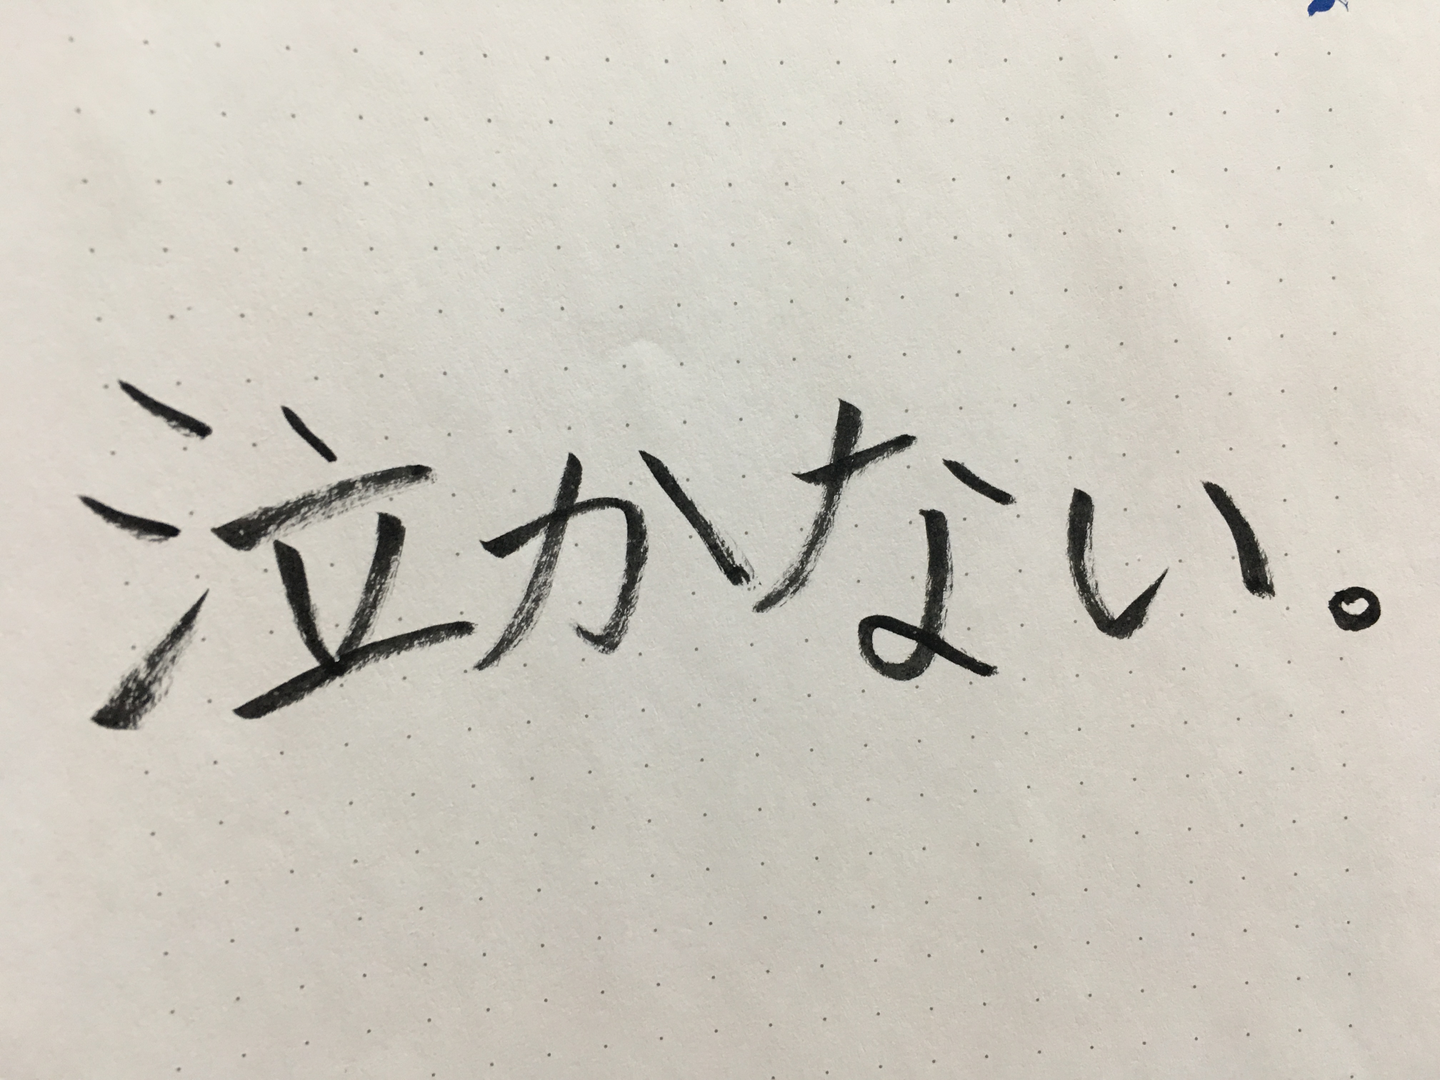 泣かない。